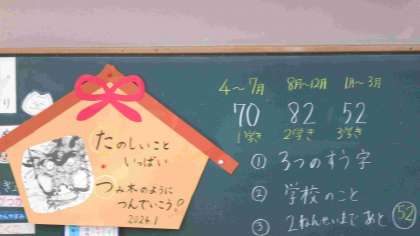 たのしいこと
いっぱい
つみ木のように
つんでいこう♪
2024.1
4～7月 8月～12月 1月～3月
70 82 52
1学き 2学き 3学き
① 3つのすう字
② 学校のこと
③ 2ねんせいまであと 52